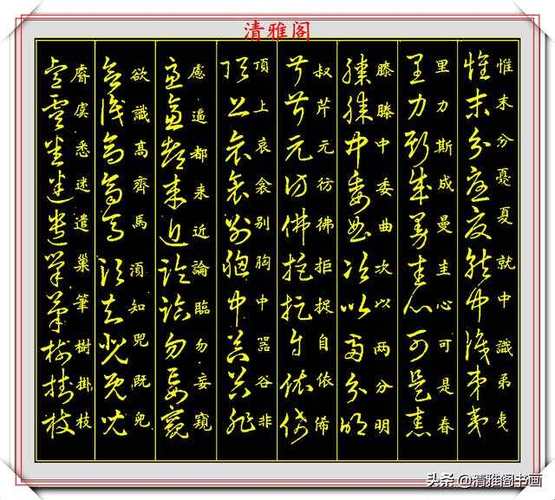 清雅阁
惟末分憂夏就中識弟
里力斯成曼圭心可是春
膝滕中委曲次以兩分明
叔芹元彷彿拒捉自依俙
頂上哀衾别胸中器谷非
慮逼都来近論臨勿妄窺
欲識高齊馬須知兕既兒
虞悉迷遣巢筆樹掛枝
头条 @清雅阁书画